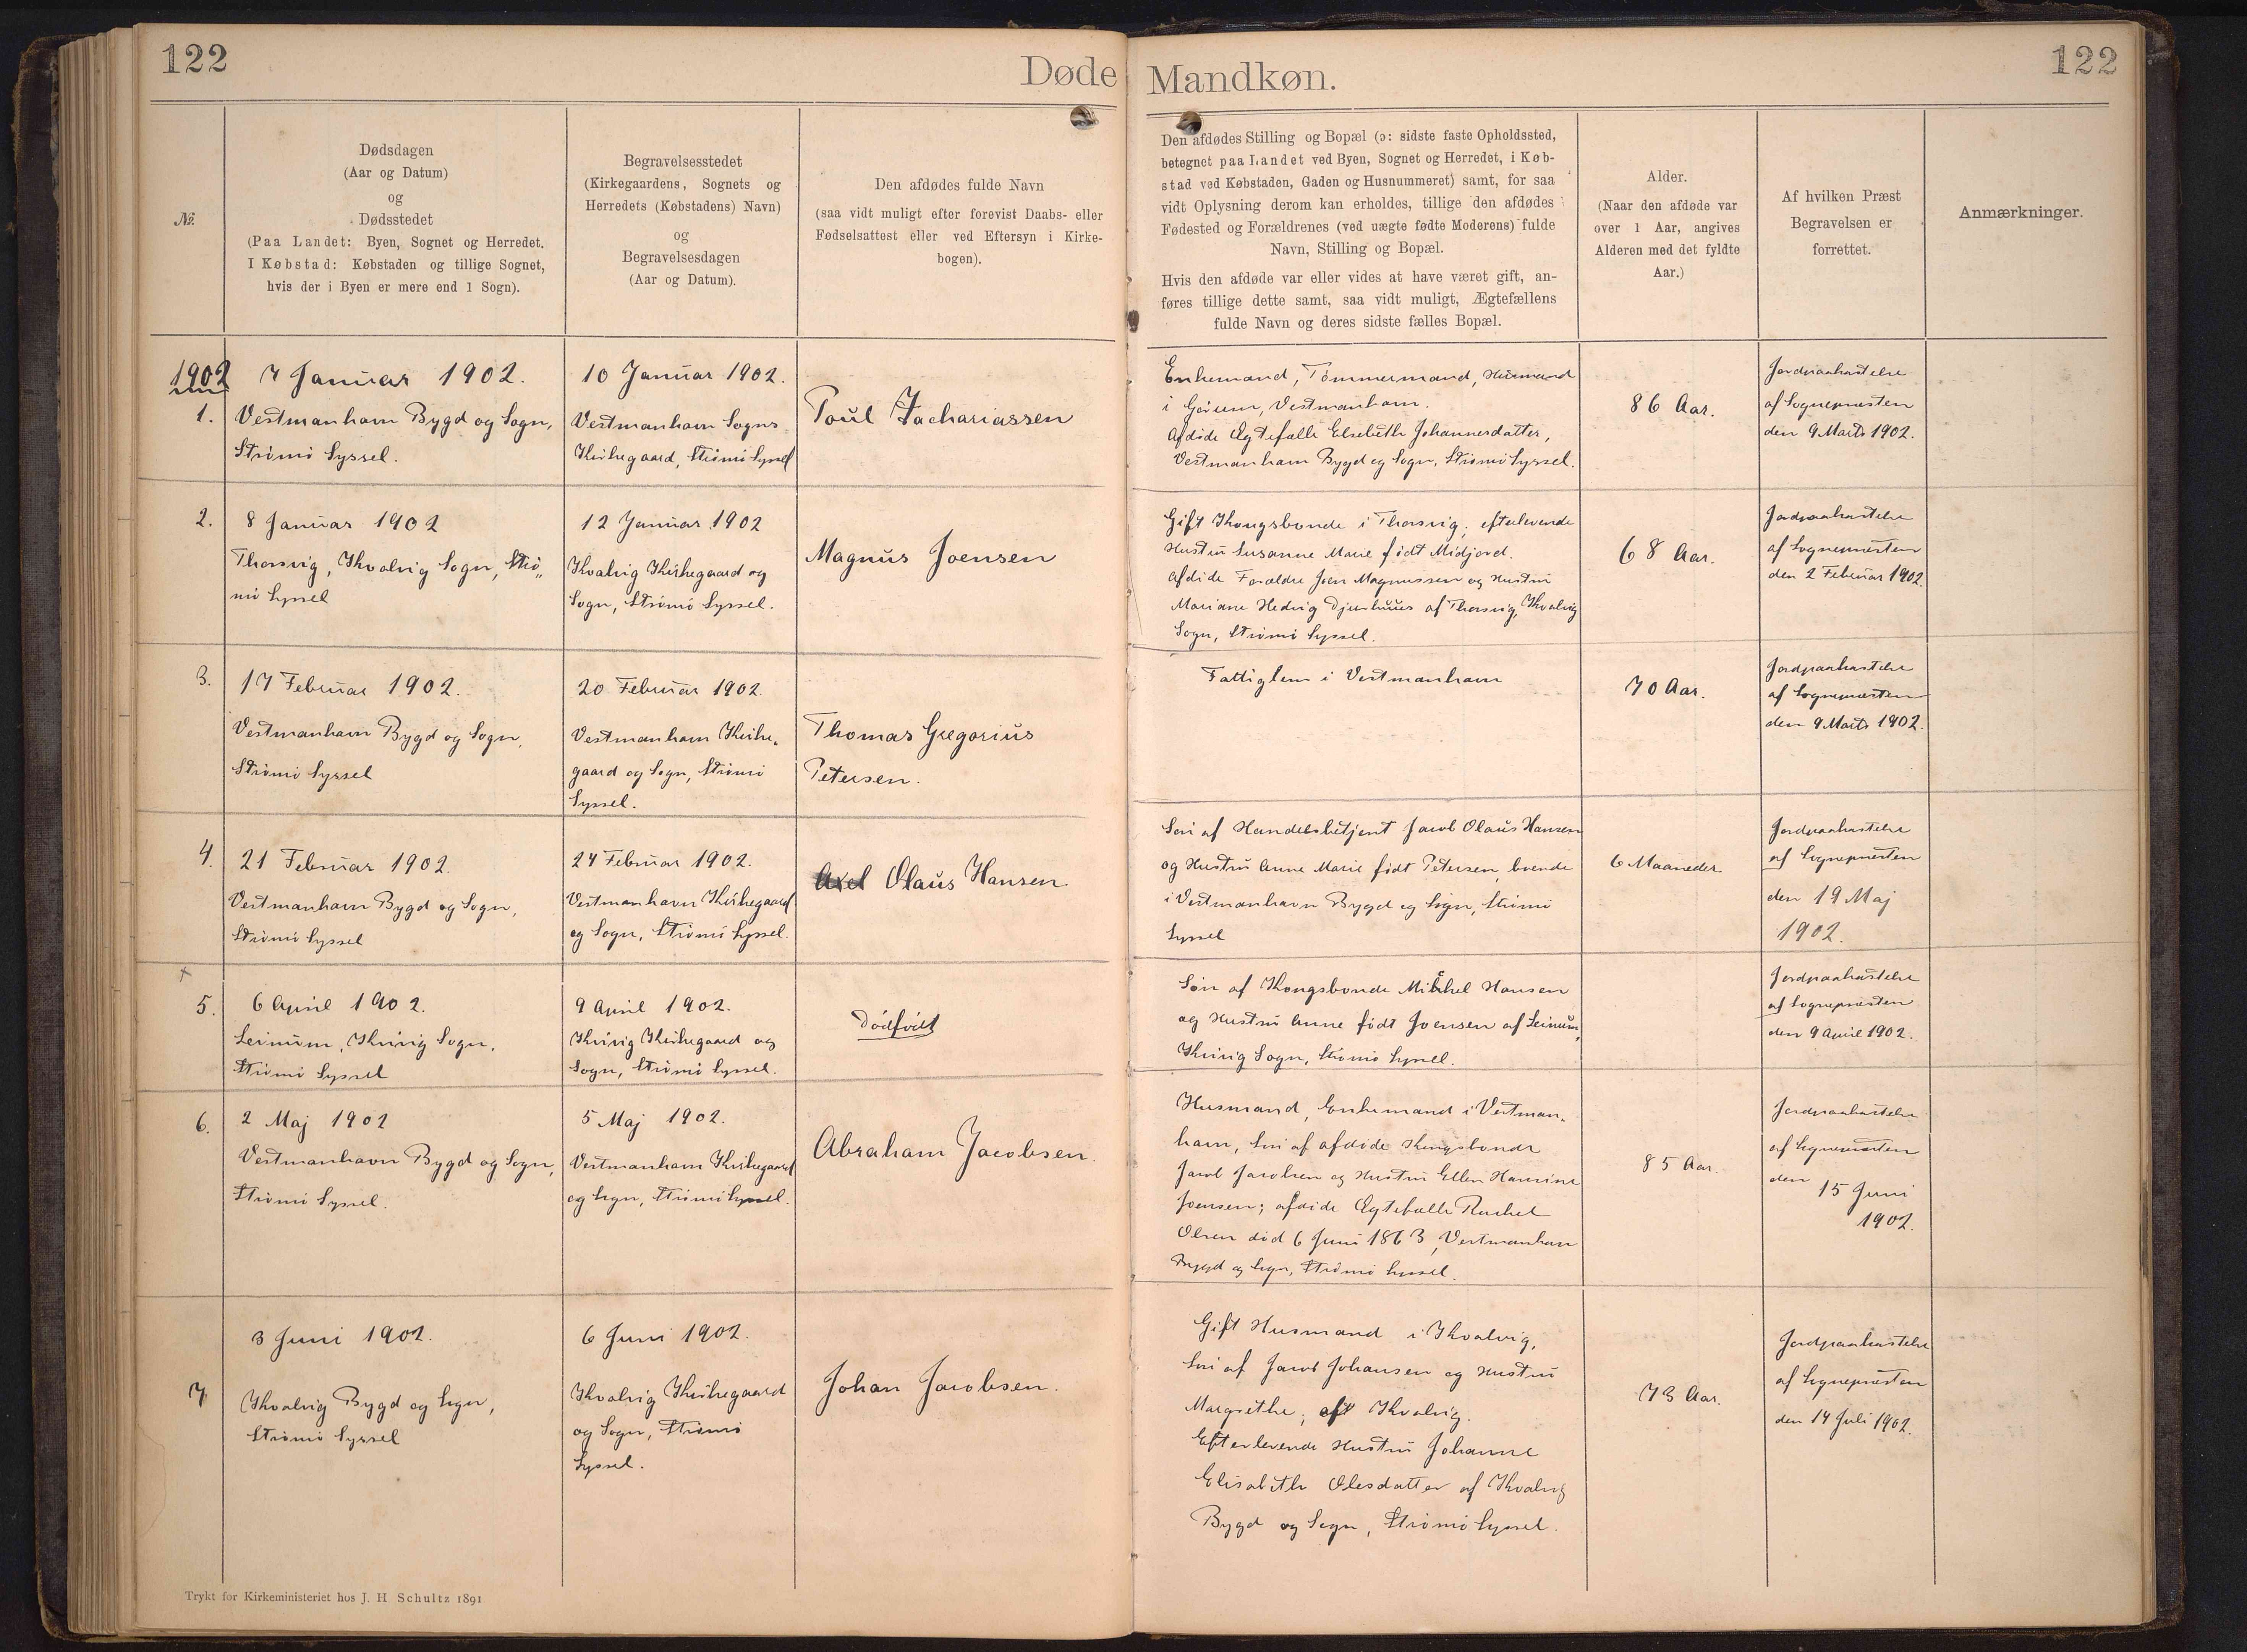 122
Døde
Mandkøn.
122
№.
Dødsdagen
(Aar og Datum)
og
Dødsstedet
(Paa Landet: Byen, Sognet og Herredet.
I Købstad: Købstaden og tillige Sognet,
hvis der i Byen er mere end 1 Sogn).
Begravelsesstedet
(Kirkegaardens, Sognets og
Herredets (Købstadens) Navn)
og
Begravelsesdagen
(Aar og Datum).
Den afdødes fulde Navn
(saa vidt muligt efter forevist Daabs- eller
Fødselsattest eller ved Eftersyn i Kirke-
bogen).
Den afdødes Stilling og Bopæl (ɔ: sidste faste Opholdssted,
betegnet paa Landet ved Byen, Sognet og Herredet, i Køb-
stad ved Købstaden, Gaden og Husnummeret) samt, for saa
vidt Oplysning derom kan erholdes, tillige den afdødes
Fødested og Forældrenes (ved uægte fødte Moderens) fulde
Navn, Stilling og Bopæl.
Hvis den afdøde var eller vides at have været gift, an-
føres tillige dette samt, saa vidt muligt, Ægtefællens
fulde Navn og deres sidste fælles Bopæl.
Alder.
(Naar den afdøde var
over 1 Aar, angives
Alderen med det fyldte
Aar.)
Af hvilken Præst
Begravelsen er
forrettet.
Anmærkninger.
1902
1.
7 Januar 1902.
Vestmanhavn Bygd og Sogn,
Strömö Syssel.
10 Januar 1902.
Vestmanhavn Sogns
Kirkegaard, Strömö Syssel
Poul Zachariassen
Enkemand, Tömmermand, Husmand
i Gørum, Vestmanhavn.
Afdöde Ægtefælle Elsebeth Johannesdatter,
Vestmanhavn Bygd og Sogn, Strömö Syssel.
86 Aar.
Jordpaakastelse
af Sognepræsten
den 9 Marts 1902.
2.
8 Januar 1902
Thorsvig, Kvalvig Sogn, Strö„
mö Syssel
12 Januar 1902
Kvalvig Kirkegaard og
Sogn, Strömö Syssel.
Magnus Joensen
Gift Kongsbonde i Thorsvig, efterlevende
Hustru Susanne Marie födt Midjord.
Afdöde Forældre Joen Magnussen og Hustru
Mariane Hedvig Djurhuus af Thorsvig, Kvalvig
Sogn, Strömö Syssel.
68 Aar.
Jordpaakastelse
af Sognepræsten
den 2 Februar 1902.
3.
17 Februar 1902.
Vestmanhavn Bygd og Sogn,
Strömö Syssel
20 Februar 1902.
Vestmanhavn Kirke„
gaard og Sogn, Strömö
Syssel.
Thomas Gregorius
Petersen.
Fattiglem i Vestmanhavn
70 Aar.
Jordpaakastelse
af Sognepræsten
den 9 Marts 1902.
4.
21 Februar 1902.
Vestmanhavn Bygd og Sogn,
Strömö Syssel
24 Februar 1902.
Vestmanhavn Kirkegaard
og Sogn, Strömö Syssel.
Axel Olaus Hansen
Sön af Handelsbetjent Jacob Olaus Hansen
og Hustru Anne Marie födt Petersen, boende
i Vestmanhavn Bygd og Sogn, Strömö
Syssel
6 Maaneder
Jordpaakastelse
af Sognepræsten
den 19 Maj
1902.
+
5.
6 April 1902.
Leinum, Kvivig Sogn,
Strömö Syssel
9 April 1902.
Kvivig Kirkegaard og
Sogn, Strömö Syssel.
Dödfödt
Sön af Kongsbonde Mikkel Hansen
og Hustru Anne födt Joensen af Leinum,
Kvivig Sogn, Strömö Syssel.
Jordpaakastelse
af Sognepræsten
den 9 April 1902.
6.
2 Maj 1902
Vestmanhavn Bygd og Sogn,
Strömö Syssel.
5 Maj 1902.
Vestmanhavn Kirkegaard
og Sogn, Strömö Syssel.
Abraham Jacobsen.
Husmand, Enkemand i Vestman„
havn, Sön af afdöde Kongsbonde
Jacob Jacobsen og Hustru Ellen Hansine
Joensen; afdöde Ægtefælle Rachel
Olsen död 6 Juni 1863, Vestmanhavn
Bygd og Sogn, Strömö Syssel.
85 Aar.
Jordpaakastelse
af Sognepræsten
den 15 Juni
1902.
7
3 Juni 1902.
Kvalvig Bygd og Sogn,
Strömö Syssel
6 Juni 1902.
Kvalvig Kirkegaard
og Sogn, Strömö
Syssel.
Johan Jacobsen.
Gift Husmand i Kvalvig,
Sön af Jacob Johansen og Hustru
Margrethe, af Kvalvig.
Efterlevende Hustru Johanne
Elisabeth Olesdatter af Kvalvig
Bygd og Sogn, Strömö Syssel.
73 Aar.
Jordpaakastelse
af Sognepræsten
den 14 Juli 1902.
Trykt for Kirkeministeriet hos J. H. Schultz 1891